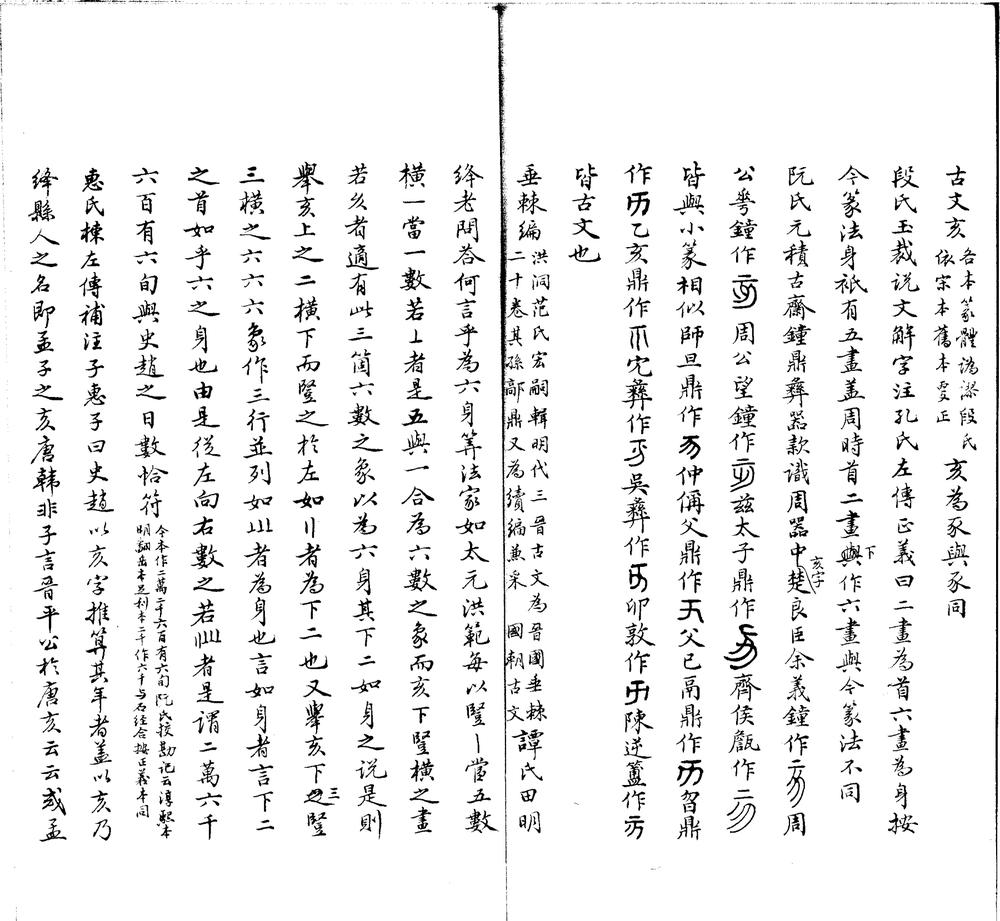 古文亥各本篆體譌謬段氏依宋本舊本更正亥為豕與豕同
段氏玉裁說文解字注孔氏左傳正義曰二畫為首六畫為身按
今篆法身祇有五畫蓋周時首二畫與下作六畫與今篆法不同
阮氏元積古齋鐘鼎彝器款識周器中亥字楚良臣余義鐘作周
公華鐘作周公望鐘作茲太子鼎作齊侯甔作
皆與小篆相似師旦鼎作仲偁父鼎作父己鬲鼎作曶鼎
作乙亥鼎作宂彝作吳彝作卯敦作陳逆簠作
皆古文也
垂棘編洪洞范氏宏嗣輯明代三晉古文為晉國垂棘二十卷其孫鄗鼎又為續編兼采 國朝古文譚氏田明
絳老問荅何言乎為六身筭法家如太元洪範每以豎丨當五數
橫一當一數若丄者是五與一合為六數之象而亥下豎橫之畫
若么者適有此三箇六數之象以為六身其下二如身之說是則
舉亥上之二橫下而豎之於左如〢者為下二也又舉亥下之三豎
三橫之六六六象作三行並列如者為身也言如身者言下二
之首如乎六之身也由是從左向右數之若者是謂二萬六千
六百有六旬與史趙之日數恰符今本作二萬二千六百有六旬阮氏挍勘記云淳熙本明翻岳本足利本二千作六千与石經合按正義本同
惠氏棟左傳補注子惠子曰史趙以亥字推算其年者蓋以亥乃
絳縣人之名即孟子之亥唐韓非子言晉平公於唐亥云云或孟